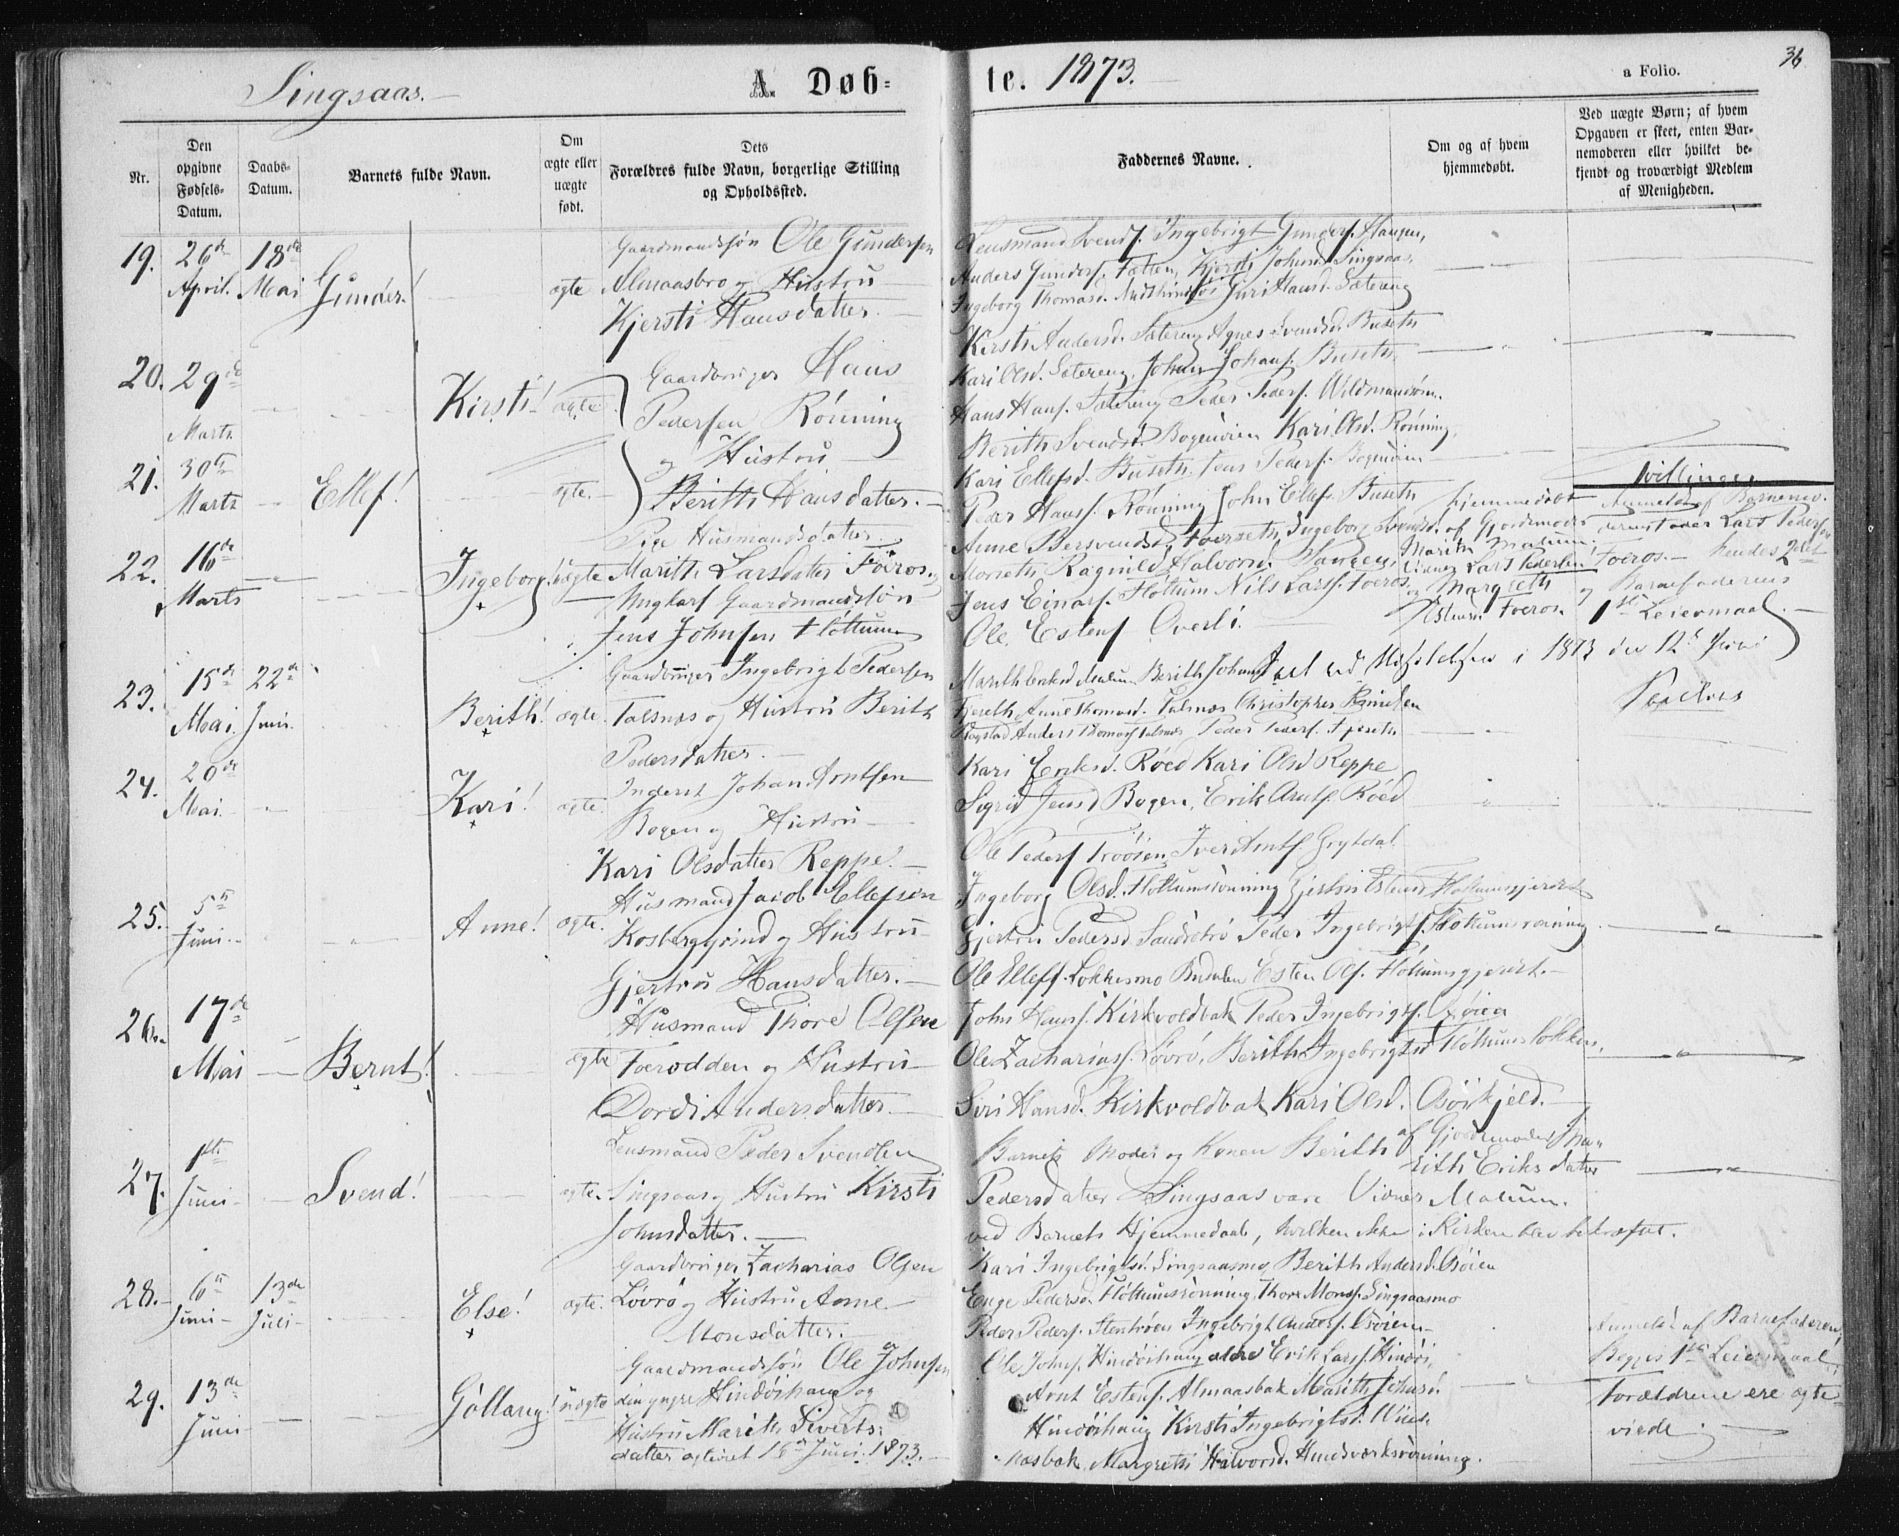 Singsaas.
A. Døb-
te. 1873.
a Folio.
36
Nr.
Den opgivne Fødsels-Datum.
Daabs-Datum.
Barnets fulde Navn.
Om ægte eller uægte født.
Dets Forældres fulde Navn, borgerlige Stilling og Opholdssted.
Faddernes Navne.
Om og af hvem hjemmedøbt.
Ved uægte Børn; af hvem Opgaven er skeet, enten Barnemoderen eller hvilket bekjendt og troværdigt Medlem af Menigheden.
19. 26de April. 18de Mai Gunder! ægte
Gaardmandssøn Ole Gundersen
Almaasbro og Hustru
Kjersti Hansdatter.
Lensmand Svends. Ingebrigt Gunders. Haugen,
Anders Gunders. Fatten, Kjersti Johnsd. Singsaas,
Ingeborg Thomasd. Guri Hansd. Sætereng
20. 29de Marts Kirsti! ægte
Gaardbruger Hans
Pedersen Rönning
og Hustru
Berith Hansdatter.
Kirsti Andersd. Sætereng Agnes Svendsd. Buseth
Kari Olsd. Sætereng, Johan Johans. Buseth
Hans Hans. Sætereng Peder Peders. Wildmandsöm.
Berith Svendsd. Bogenöien Kari Olsd. Rönning,
21. 30te Marts Ellef! ægte.
Kari Ellefsd. Buseth. Jens Peders. Bogenöien
Peder Hans. Rönning John Ellefs. Buseth
Tvillinger
22. 16de Marts Ingeborg! uægte
Pige Husmandsdatter
Marith Larsdatter Foeros. og
Ungkarl Gaardmandssön
Jens Johnsen Flöttum
Anne Bersvendsd. Foerseth, Ingeborg Svendsd.
Morseth Ragnild Halvorsd. Haugen,
Jens Einars. Flöttum Nils Larss. Foeros.
Ole Estens. Overli.
hjemmedöbt
af Gjordemoder
Marith Malum
Vidner Lars Pedersen
og Margreth
Estensd. Foeros.
Anmeldt af Barnemo-
derens Fader Lars Peders.
Foeros. Hendes 2det
og Barnefaderens
1ste Leiermaal.
23. 15de Mai. 22de Juni. Berith! ægte.
Gaardbruger Ingebrigt Pedersen
Talsnæs og Hustru Berith
Pedersdatter.
Marith Eriksd. Malum Berith Johnsd.
Anne Thomasd. Talsnæs Christopher
Rogstad Anders Thomass. Talsnæs Peder Peders. Fjeseth
24. 20de Mai. Kari! ægte.
Inderst Johan Arntsen
Bogen og Hustru
Kari Olsdatter Reppe.
Kari Eriksd. Röed Kari Olsd. Reppe
Sigrid Jensd. Bogen, Erik Arnts. Röed
Ole Peders. Troöien Iver Arnts. Grytdal
25. 5te Juni. Anne! ægte.
Husmand Jacob Ellefsen
Kosberggrind og Hustru
Gjertru Hansdatter.
Ingeborg Olsd. Flöttumsrönning Gjertru Estensd. Flöttumsgjerdet
Gjertru Pedersd. Sandbro Peder Ingebrigts. Flöttumsrönning
Ole Ellefs. Lokkesmo Budalen Esten Ols. Flöttumsgjerdet.
26. 17de Mai Bernt! ægte
Husmand Thore Olsen
Foerodden og Hustru
Dordi Andersdatter.
John Hans. Kirkvoldbak Peder Ingebrigts. Osöien
Ole Zacharias. Lövrö, Berith Ingebrigtsd. Flöttumslökken.
Siri Hansd. Kirkvoldbak Kari Olsd. Osöikjeld.
27. 1ste Juni Svend! ægte.
Lensmand Peder Svendsen
Singsaas og Hustru Kirsti
Johnsdatter.
Barnets Moder og Konen Berith
Pedersdatter Singsaas vare Vidner
ved Barnets Hjemmedaab, hvilken ikke i Kirken blev bekræftet.
af Gjordemoder Ma-
rith Eriksdatter
Malum.
28. 6te Juni 13de Juli Else! ægte.
Gaardbruger Zacharias Olsen
Lövrö og Hustru Anne
Monsdatter.
Kari Ingebrigtsd. Singsaasmo, Berith Andersd. Osöien
Enge Pedersd. Flöttumsrönning, Thore Mons. Singsaasmo
Peder Peders. Stenbröen Ingebrigt Anders. Osöien
29. 13de Juni Göllaug! uægte
Gaardmandssön Ole Johnsen
den yngre Hindöihaug og
Hustru Marith Siverts-
datter ægteviet 15de Juni 1873.
Ole Johns. Hindöihaug ældre Erik Larss. Hindöi,
Arnt Estens. Almaasbak Marith Johnsd.
Hindöihaug Kirsti Ingebrigtsd. Wiid-
næsbak Margreth Halvorsd. Hindværksrönning.
Anmeldt af Barnefaderen.
Begges 1ste Leiermaal.
Forældrene ere ægte-
viede.